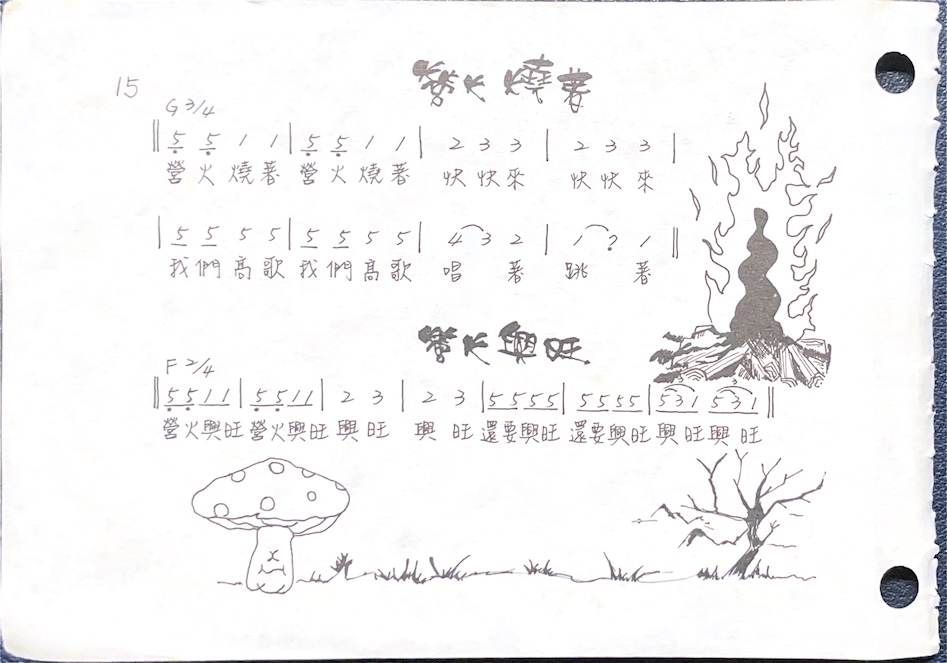 營火燒著
15
G 3/4
‖ 5̣ 5̣ 1 1 | 5̣ 5̣ 1 1 | 2 3 3 | 2 3 3 |
營火燒著 營火燒著 快快來 快快來
| 5 5 5 5 | 5 5 5 5 | 4 3 2 | 1 ? 1 ‖
我們高歌 我們高歌 唱 著 跳 著
營火興旺
F 2/4
‖ 5̣ 5̣ 1 1 | 5̣ 5̣ 1 1 | 2 3 | 2 3 | 5 5 5 5 | 5 5 5 5 | 5 3 1 5 3 1 ‖
3
營火興旺 營火興旺 興旺 興旺 還要興旺 還要興旺 興旺興旺